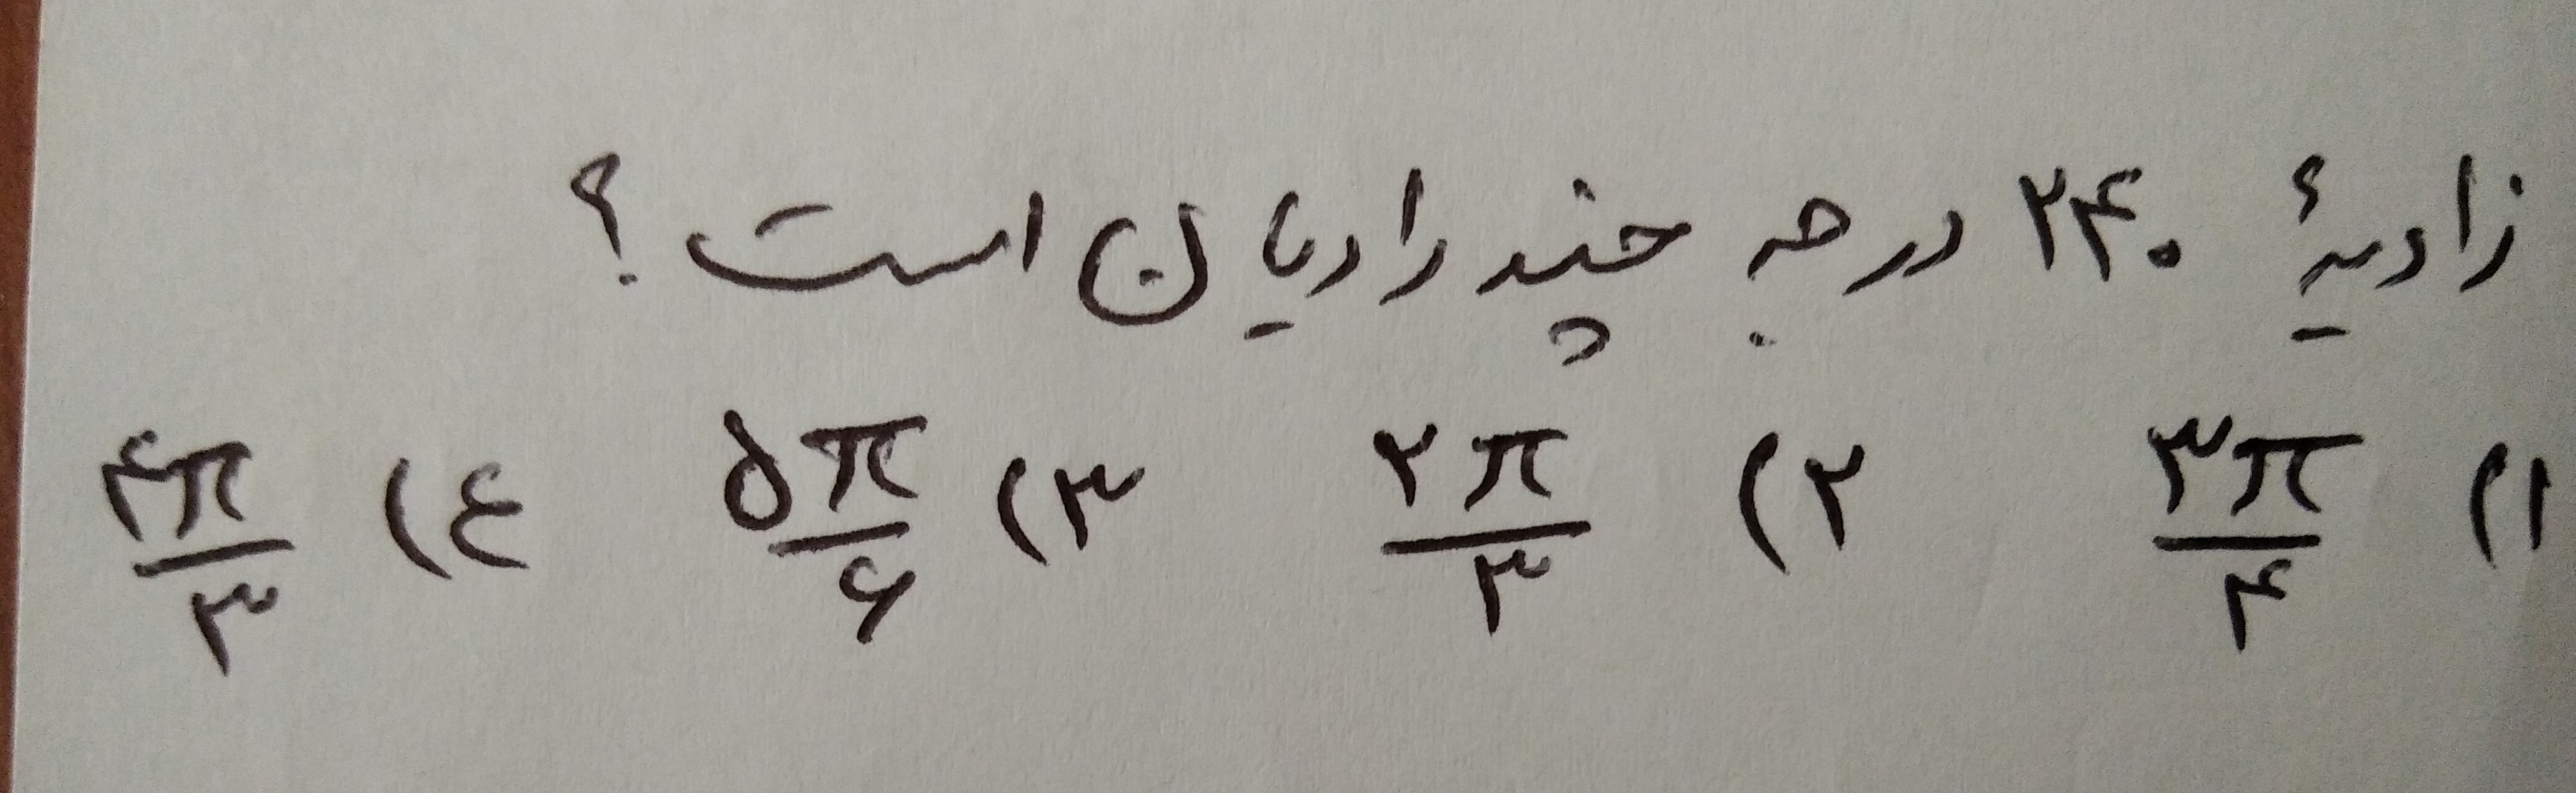 زاویهٔ ۲۴۰ درجه چند رادیان است؟
۱) ۳π/۴ ۲) ۲π/۳ ۳) ۵π/۶ ۴) ۴π/۳